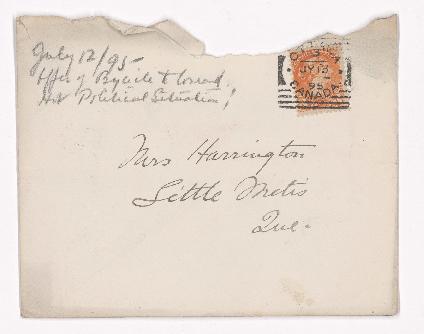 July 12/95-
Offer of Bycicle to Conrad.
Hot Political Situation!
OTTAWA
JY 13
95
CANADA
Mrs Harrington
Little Metis
Que-